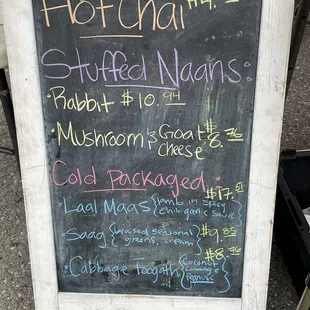 Hot Chai $4.
Stuffed Naans:
• Rabbit $10.94
• Mushroom & Goat cheese $8.76
Cold packaged
• Laal Maas {lamb in spicy chili garlic sauce} $17.51
Saag {braised seasonal greens, cream} $9.85
• Cabbage Foogath {coconut cabbage} $8.76